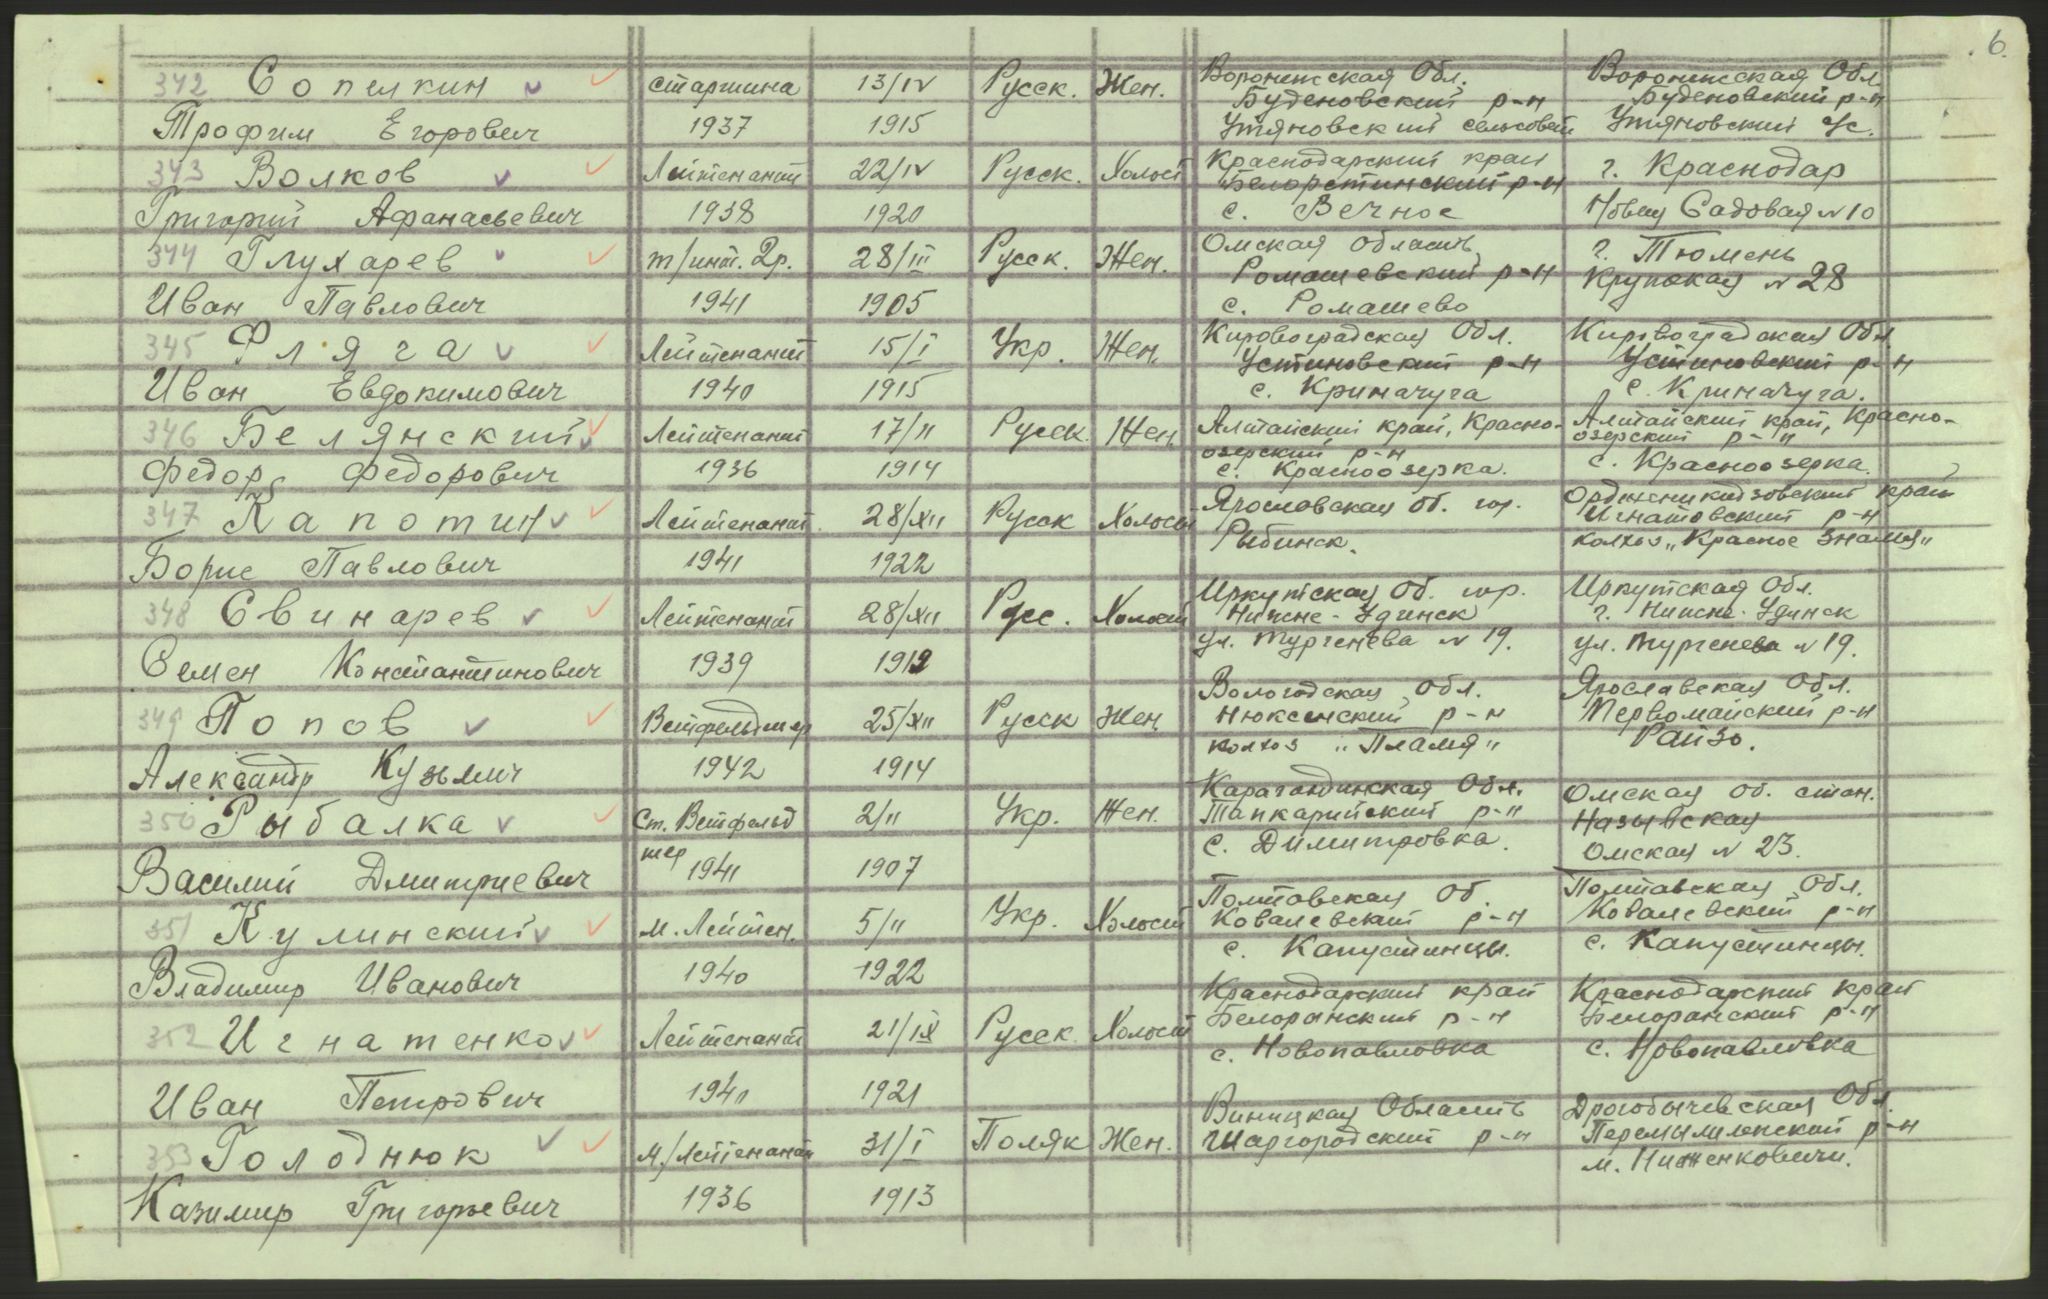 6.
342 Сопелкин старшина 13/IV Русск. Жен. Воронежская Обл. Воронежская Обл.
Буденовский р-н Буденовский р-н
Трофим Егорович 1937 1915 Утяновский сельсовет Утяновский с/с.
343 Волков Лейтенант 22/IV Русск. Холост Краснодарский край г. Краснодар
р-н
Григорий Афанасьевич 1938 1920 с. Вечное Садовая № 10
344 Глухарев т/инт. 2р. 28/III Русск. Жен. Омская область г. Тюмень
Ромашевский р-н Крупская № 28
Иван Павлович 1941 1905 с. Ромашево
345 Фляга Лейтенант 15/I Укр. Жен. Кировоградская Обл. Кировоградская Обл.
Устиновский р-н Устиновский р-н
Иван Евдокимович 1940 1915 с. Криначуга с. Криначуга.
346 Белянский Лейтенант 17/II Русск. Жен. Алтайский край, Красно- Алтайский край, Красно-
озерский р-н озерский р-н
Федор Федорович 1936 1914 с. Красноозерка. с. Красноозерка.
347 Капотин Лейтенант 28/XII Русск Холост Ярословская об. гор. Орджоникидзовский край
Рыбинск. Игнатовский р-н
Борис Павлович 1941 1922 колхоз „Красное Знамя"
348 Свинарев Лейтенант 28/XII Русс. Холост Иркутская Об. гор. Иркутская Обл.
Нижне-Удинск г. Нижне-Удинск
ул. Тургенева № 19. ул. Тургенева № 19.
Семен Константинович 1939 1919
349 Попов Ветфельдшер 25/XII Русск Жен. Вологодская Обл. Ярославская Обл.
Нюксенский р-н Первомайский р-н
колхоз „Пламя" Райзо.
Александр Кузьмич 1942 1914
350 Рыбалка Ст. Ветфельд 2/II Укр. Жен. Карагандинская Обл. Омская об. стан.
шер Тапкарийский р-н Называская
с. Димитровка. Омская № 23.
Василий Дмитриевич 1941 1907
351 Кулинский м. Лейтен. 5/II Укр. Холост Полтавская Об. Полтавская Обл.
Ковалевский р-н Ковалевский р-н
с. Капустинцы. с. Капустинцы.
Владимир Иванович 1940 1922
352 Игнатенко Лейтенант 21/IX Русск. Холост Краснодарский край Краснодарский край
Белоранский р-н Белоранский р-н
с. Новопавловка с. Новопавловка
Иван Петрович 1940 1921
353 Голоднюк м/Лейтенант 31/I Поляк Жен. Виницкая Область Дрогобычевская Обл.
Шаргородский р-н Перемышленский р-н
м. Ниженковичи.
Казимир Григорьевич 1936 1913